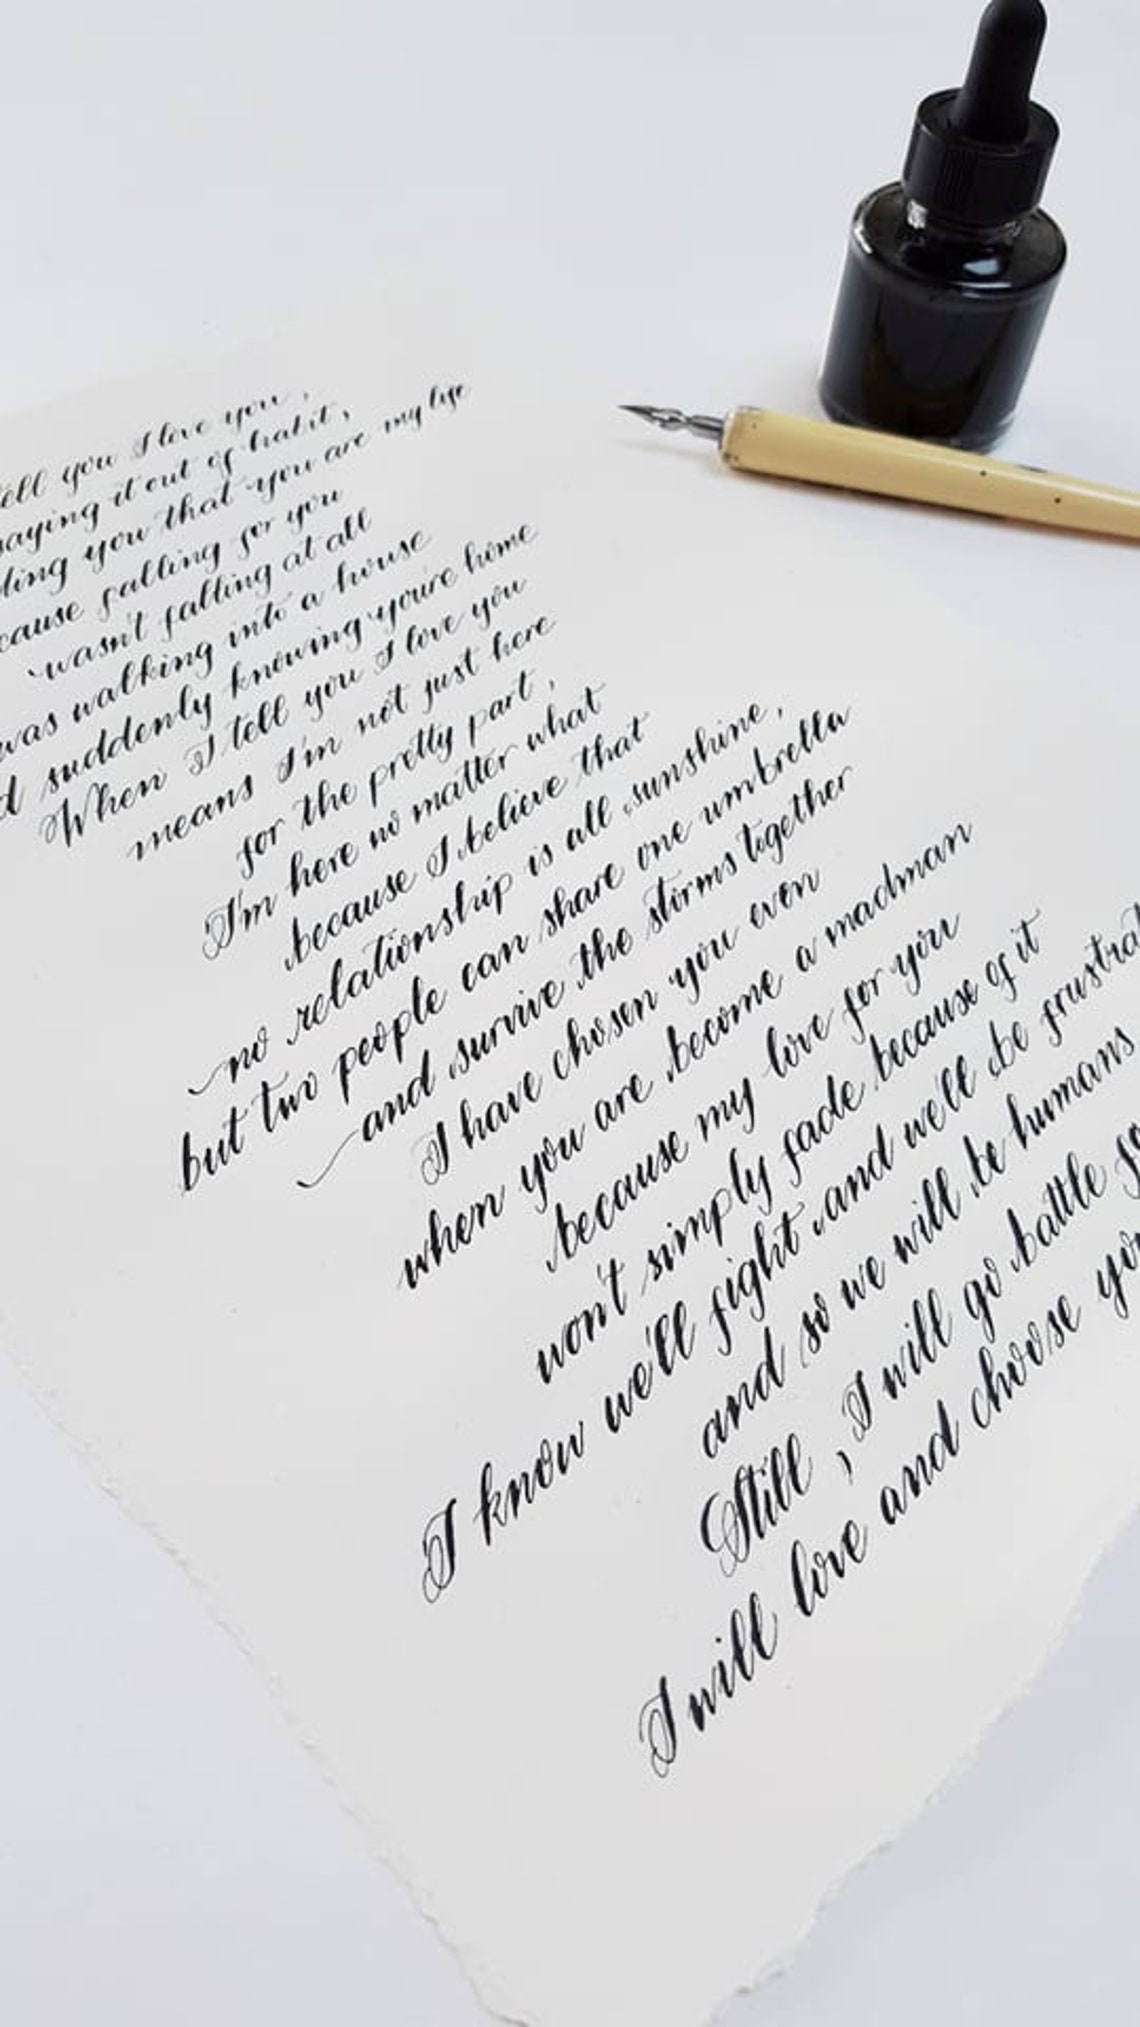 tell you I love you,
saying it out of habit,
you that you are my life
falling for you
wasn't falling at all
was walking into a house
suddenly knowing you're home
When I tell you I love you
means I'm not just here
for the pretty part,
I'm here no matter what
because I believe that
no relationship is all sunshine,
but two people can share one umbrella
and survive the storms together
I have chosen you even
when you are become a madman
because my love for you
won't simply fade because of it
I know we'll fight and we'll be
and so we will be humans
Still, I will go battle
I will love and choose